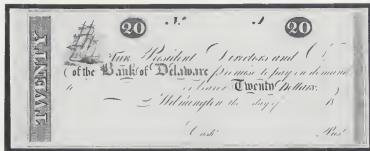 20 20
TWENTY
The President Directors and Co
of the Bank of Delaware promise to pay on demand
to or bearer Twenty Dollars.
Wilmington the day of 18
Cash Pres